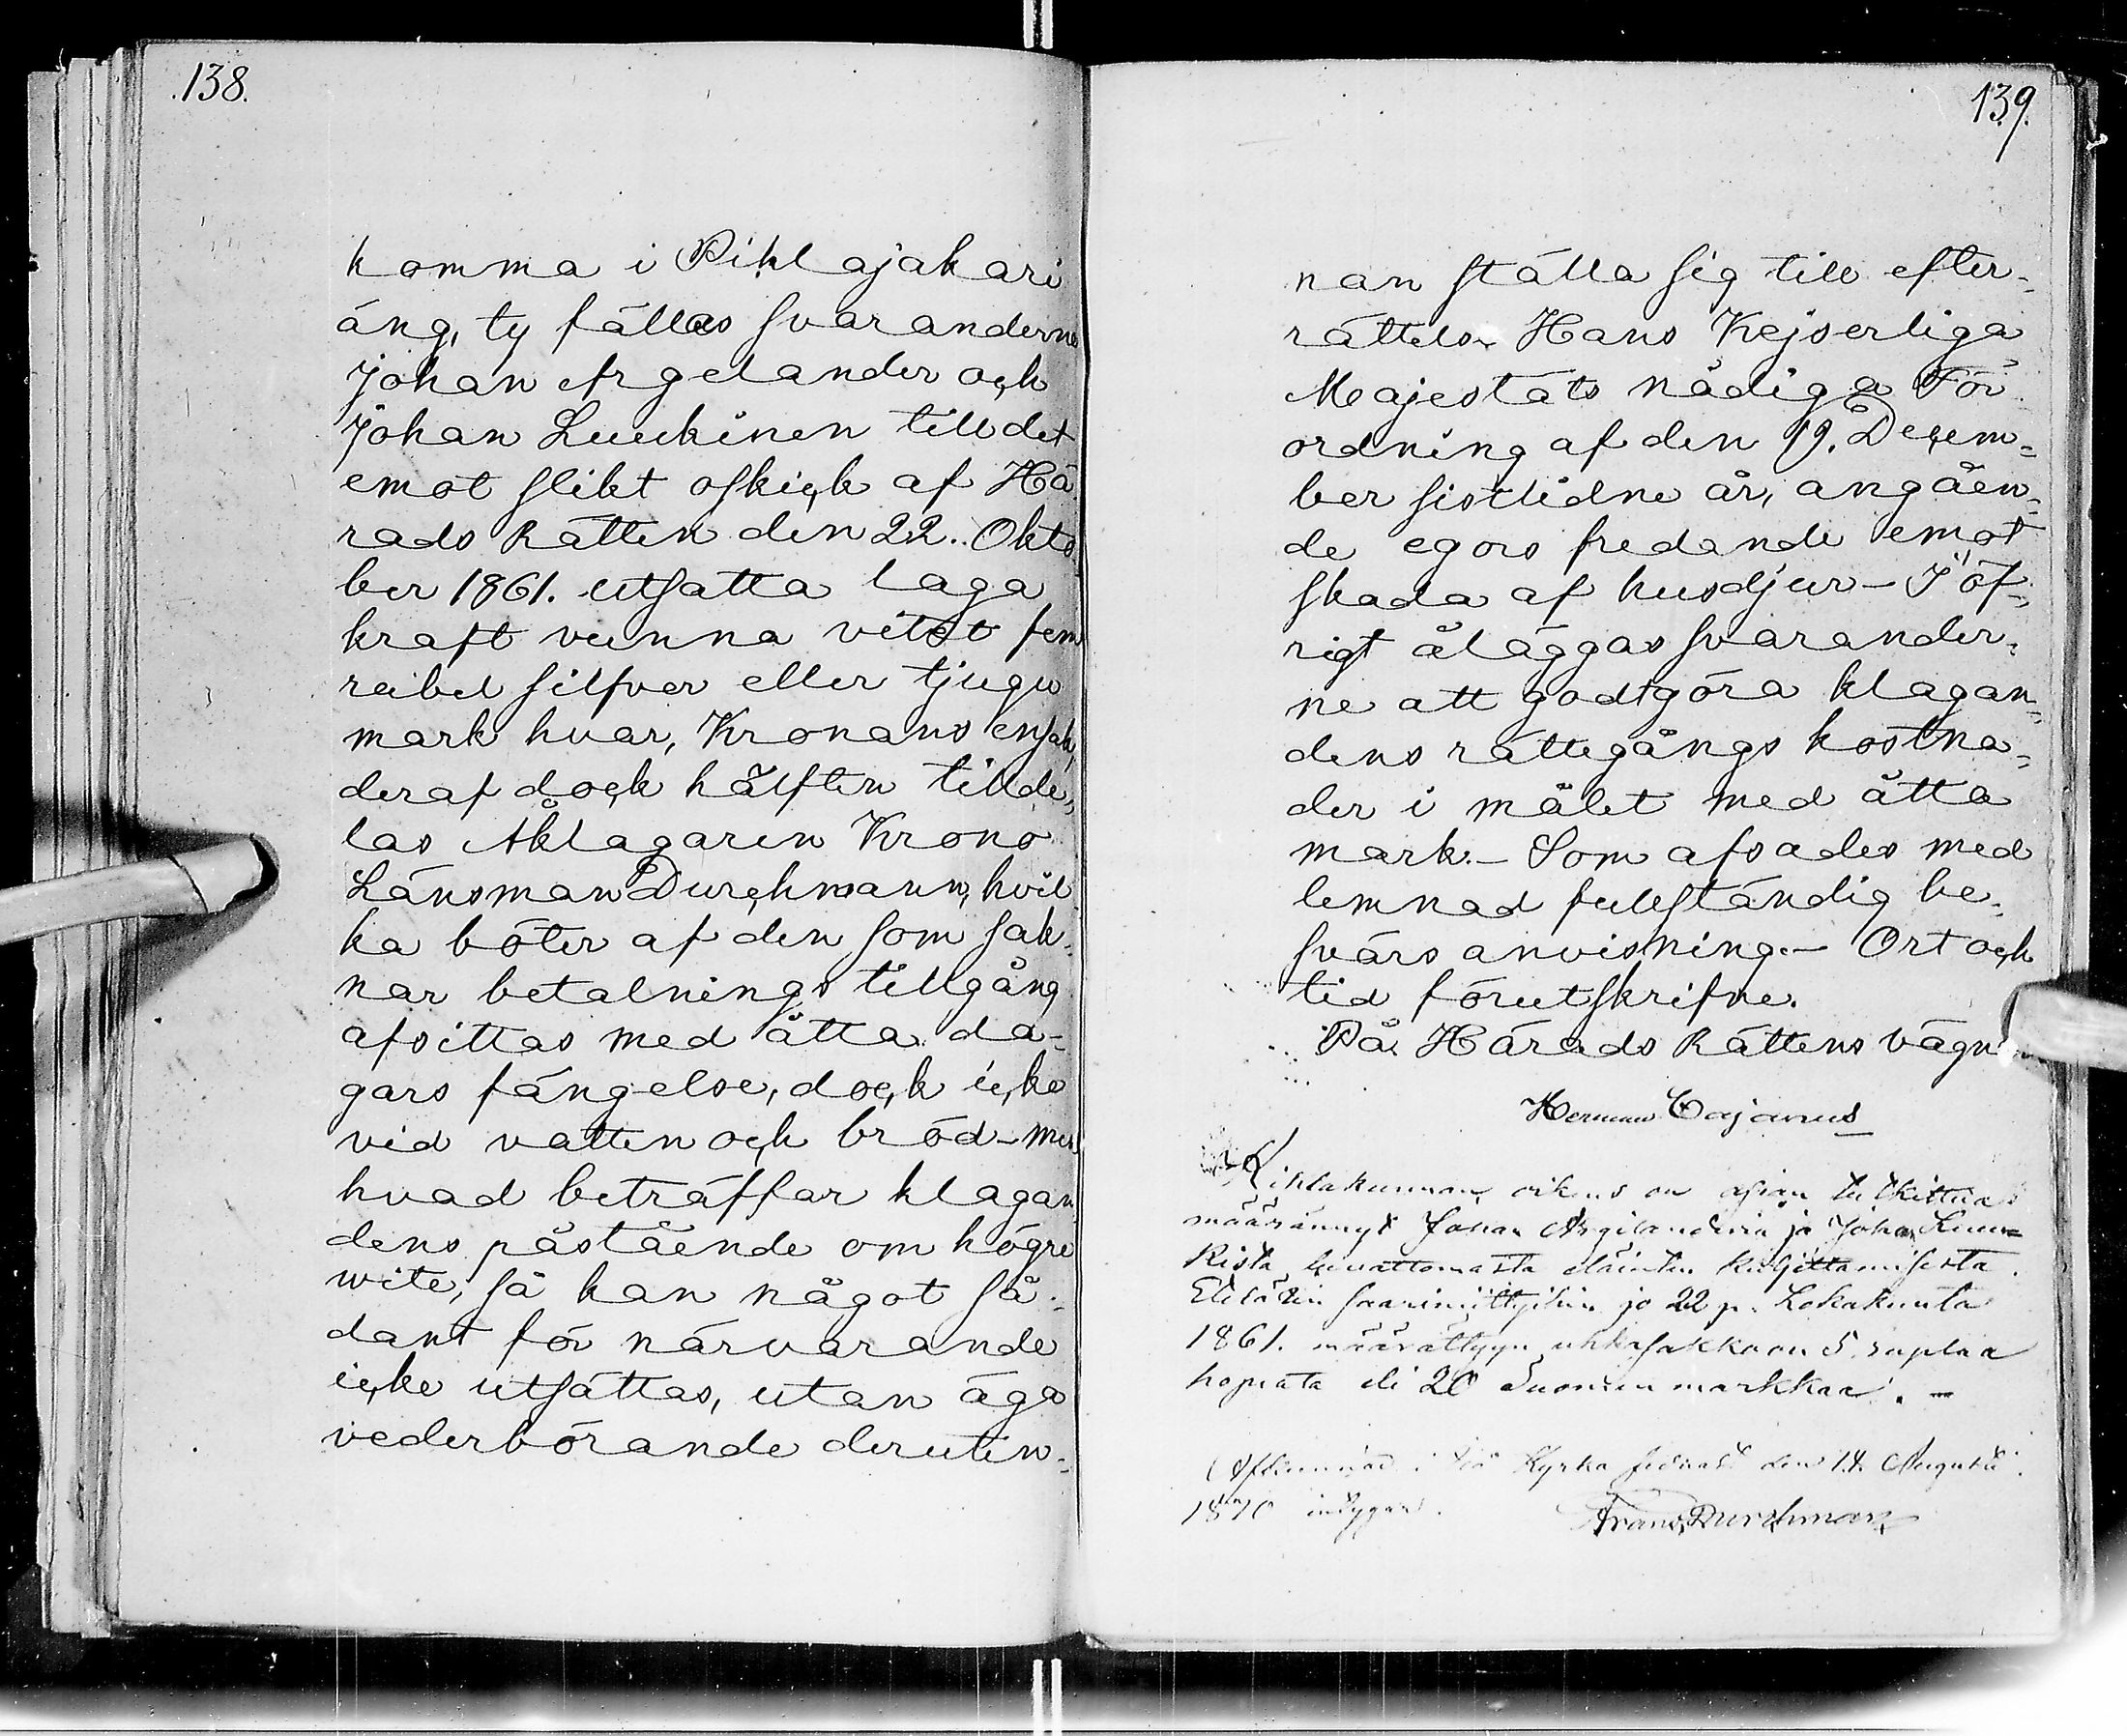 138.
komma i Pihlajakari
äng, ty fällas svaranderne
Johan Argelander och
Johan Luukinen till det
emot slikt oskick af Hä
rads Rätten den 22. Okto
ber 1861. utsatta laga
kraft vunna vitet fem
rubel silfver eller tjugu
mark hvar, Kronans ensak,
deraf dock hälften tillde,
las Åklagaren Krono
Länsman Durchmann, hvil
ka böter af den som sak,
nar betalnings tillgång
afsittas med åtta da-
gars fängelse, dock icke
vid vatten och bröd – men
hvad beträffar klagan
dens påstående om högre
wite, så kan något så-
dant för närvarande
icke utsättas, utan äga
vederbörande deruten-
139.
nan ställa sig till efter-
rättelse Hans Kejserliga
Majestäts nådiga För
ordning af den 19. Decem-
ber sistlidne år, angåen-
de egors fredande emot
skada af husdjur – I öf-
rigt åläggas svarander-
ne att godtgöra klagan-
dens rättegångs kostna-
der i målet med åtta
mark. – Som afsades med
lemnad fullständig be-
svärs anvisning. – Ort och
tid förutskrifne.
På Härads Rättens vägnar
Herman Cajanus
Kihlakunnan oikeus on asian tutkittua
määrännyt Johan Argelanderin ja Johan Luu-
kista luvattomasta eläinten kuljettamisesta
1861. määrättyyn uhkasakkoon 5 ruplaa
hopiata eli 20 Suomen markkaa. –
Kyrka den 14 Augusti
1870 intygar. Frans Durchman